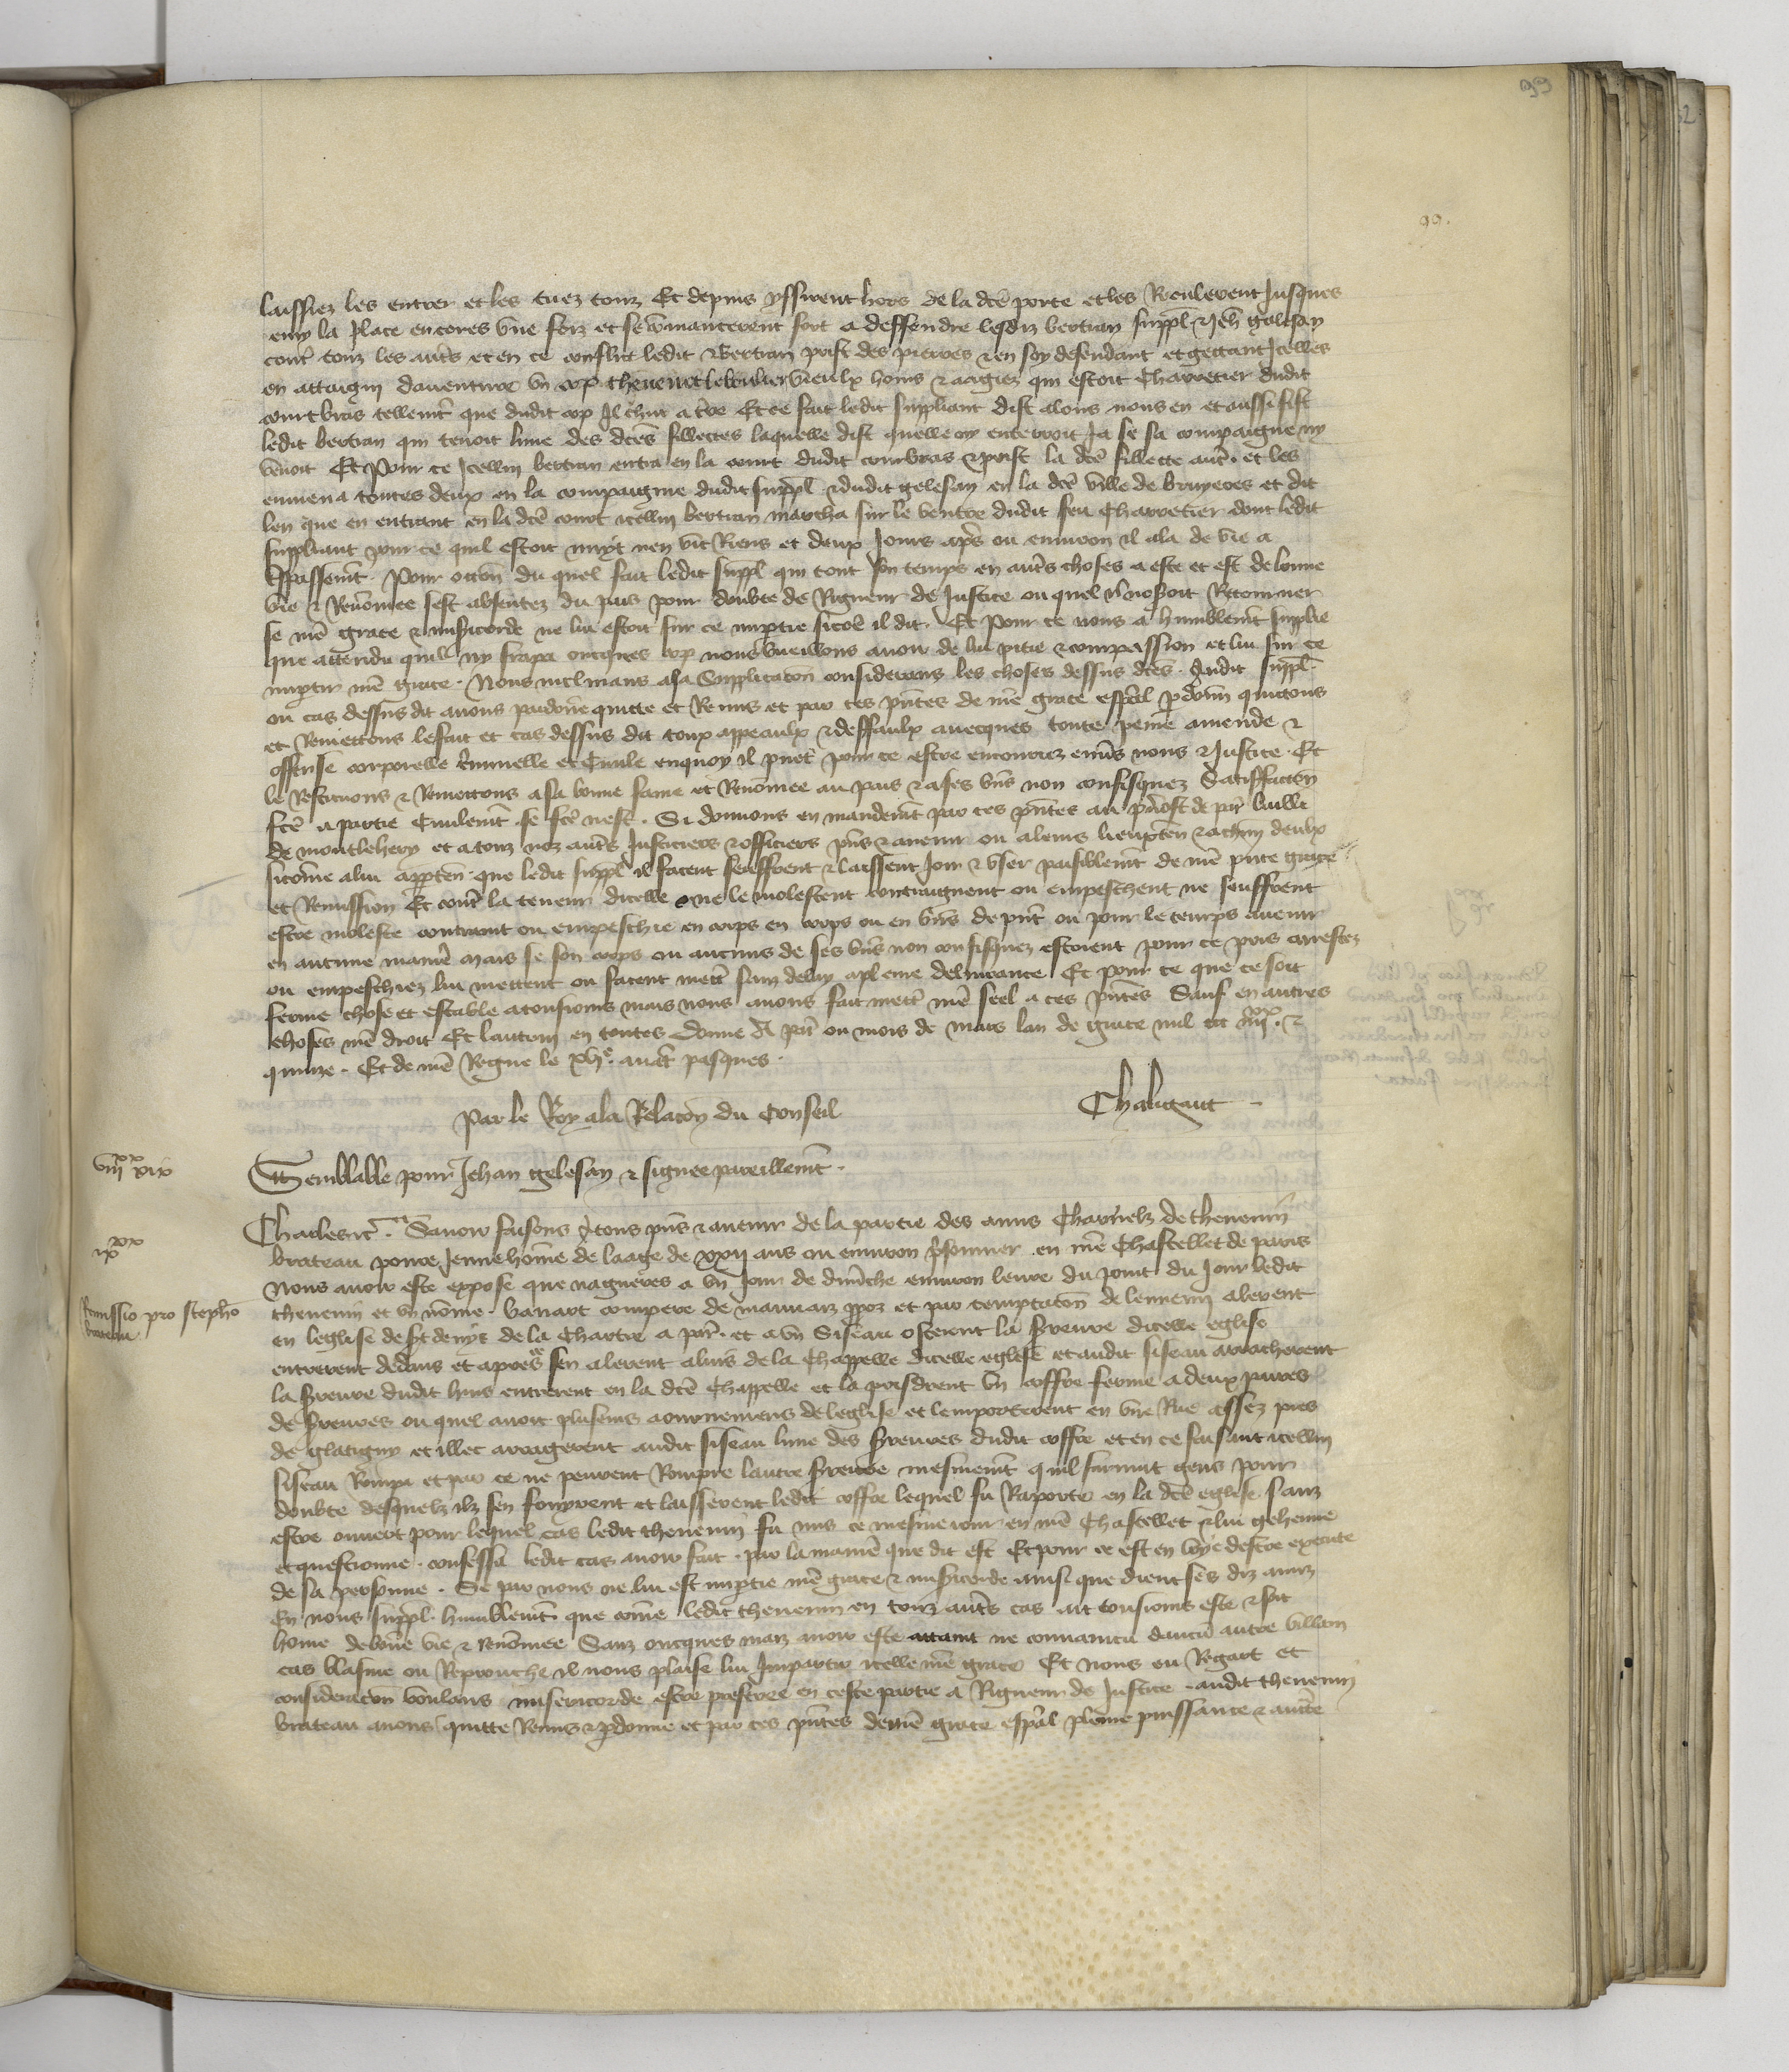 99
99.
laissiez les entrer et les tuez touz Et depuis yssirent hors de la dce porte et les Reculerent Jusques
emy la place encores une foiz et se commancerent fort a deffendre lesdiz bertran suppl & Jeh gelesay
contre touz les autres et en ce conflict ledit Bertran prist des pierres & en soy defendant et gettant Jcelles
en attaigny daventure un cop thevenot viculx homs & aagiez qui estoit Charretier dudit
courtbras tellemt que dudit cop Jl chut a tre Et ce fait ledit suppliant dist alons nous en et aussi fist
ledit bertran qui tenoit lune des dces fillettes laquelle dist quelle ny entreroit Ja se sa compaigne ny
venoit Et pour ce Jcellui bertran entra en la court dudit courtbras & prist la dce fillette autre. et les
enmena toutes deux en la compaignie dudit suppl & dudit gelesay en la dce ville de bruyeres et dit
len que en entrant en la dce court icellui bertran marcha sur le ventre dudit feu Charretier dont ledit
suppliant pour ce quil estoit nuyt nen vit Riens et deux Jours apres ou environ il ala de vie a
trpassemt. Pour occon du quel fait ledit suppl qui tout son temps en autres choses a este et est de bonne
vie & Renommee sest absentez du pais pour doubte de Rigueur de Justice ou quel il noseroit Retourner
se nre grace & misericorde ne lui estoit sur ce impartie sicoe il dit. Et pour ce nous a humblemt supplie
que attendu quil ny frapa oncques cop nous vueillons avoir de lui pitie & compassion et lui sur ce
impartir nre grace. Nous inclinans a sa Supplicacon considerans les choses dessus dces. Audit suppl.
ou cas dessus dit avons pardonne quitte et Remis et par ces pntes de nre grace espal pdonn quittons
et Remettons le fait et cas dessus dit toux appeaulx & deffaulx avecques toute peine amende &
offense corporelle criminelle et Civile enquoy il puet pour ce estre encouruz envers nous & Justice. Et
le Restituons & Remettons a sa bonne fame et Renommee au pais & a ses biens non confisquez Satisffaccon
fce a partie Civilemt se fce nest. Si donnons en mandemt par ces pntes au prevost de par baille
de montlehery et a touz noz autres Justiciers & officiers pns & avenir ou a leurs lieuxten & a chun deulx
sicomme a lui appten. que ledit suppl il facent seuffrent & laissent Joir & user paisiblemt de nre pnte grace
et Remission Et contre la teneur dicelle ne le molestent contraignent ou empeschent ne seuffrent
estre moleste contraint ou empeschie en corps en corps ou en biens de pnt ou pour le temps avenir
en aucune manie Mais se son corps ou aucuns de ses biens non confisquez estoient pour ce pris arrestez
ou empeschiez lui mettent ou facent mettre sanz delay a pleine delivrance Et pour ce que ce soit
ferme chose et estable a tousiours mais nous avons fait mettre nre seel a ces pntes Sauf en autres
choses nre droit Et lautruy en toutes Donne A par ou mois de mars lan de grace mil ccc iiijxx &
quinze. Et de nre Regne le xvje. avant pasques.
Par le Roy a la Relacon du Conseil
Chaligaut
viijxx xix
Semblable pour Jehan gelesay & signee pareillemt.
ixxx
Charles &c. Savoir faisons a tous pns & avenir de la partie des amis Charnelz de thevenin
brateau povre Jeune homme de laage de xxij ans ou environ prisonnier en nre Chastellet de paris
Nous avoir este expose que nagueres a un Jour de dimenche environ leure du point du Jour ledit
Remissio pro stepho brateau
thevenin et un nomme banart compere de mauvaiz ppoz et par temptacon de lennemi alerent
en leglise de St denys de la Chartre a par. et a un Siseau osterent la serrure dicelle eglise
entrerent dedens et apres ce sen alerent a luis de la Chappelle dicelle eglise et audit siseau arracherent
la serrure dudit huis entrerent en la dce Chappelle et la prisdrent un coffre ferme a deux paires
de serrures ou quel avoit pluseurs aournemens de leglise et lemporterent en une Rue assez pres
de glatigny et illec arragerent audit siseau lune des serrures dudit coffre et en ce faisant icellui
siseau Rompi et par ce ne peurent Rompre lautre serrure mesmemt quil survint gens pour
doubte desquelz ilz sen fouyrent et laisserent ledit coffre lequel fu Raporte en la dce eglise sanz
estre ouvert pour lequel cas ledit thevenin fu mis ce mesme iour en nre Chastellet & lui gehenne
et questionne. confessa ledit cas avoir fait par la manie que dit est Et pour ce est en voye destre execute
de sa personne. Se par nous ne lui est impartie nre grace & misericorde ainsi que dient ses diz amiz
En nous suppl. humblemt que comme ledit thevenin en touz autres cas ait tousiours este & soit
homme de bonne vie & renommee Sanz oncques maiz avoir este attaint ne convaincu daucun autre villain
cas blasme ou Reprouche il nous plaise lui Jmpartir icelle nre grace Et Nous eu Regart et
consideracon voulans misericorde estre preferee en ceste partie a Rigueur de Justice. audit thevenin
brateau avons quitte Remis & pdonne et par ces pntes de nre grace espal pleine puissance & aucte